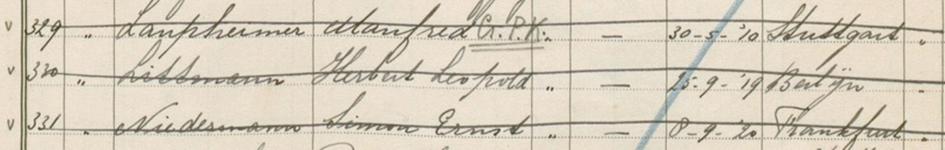 v 329 " Laupheimer Manfred G.P.K. " — 30-5-'10 Stuttgart "
v 330 " Littmann Herbert Leopold " — 25-9-'19 Berlijn "
v 331 " Niedermann Simon Ernst " — 8-9-'20 Frankfurt "